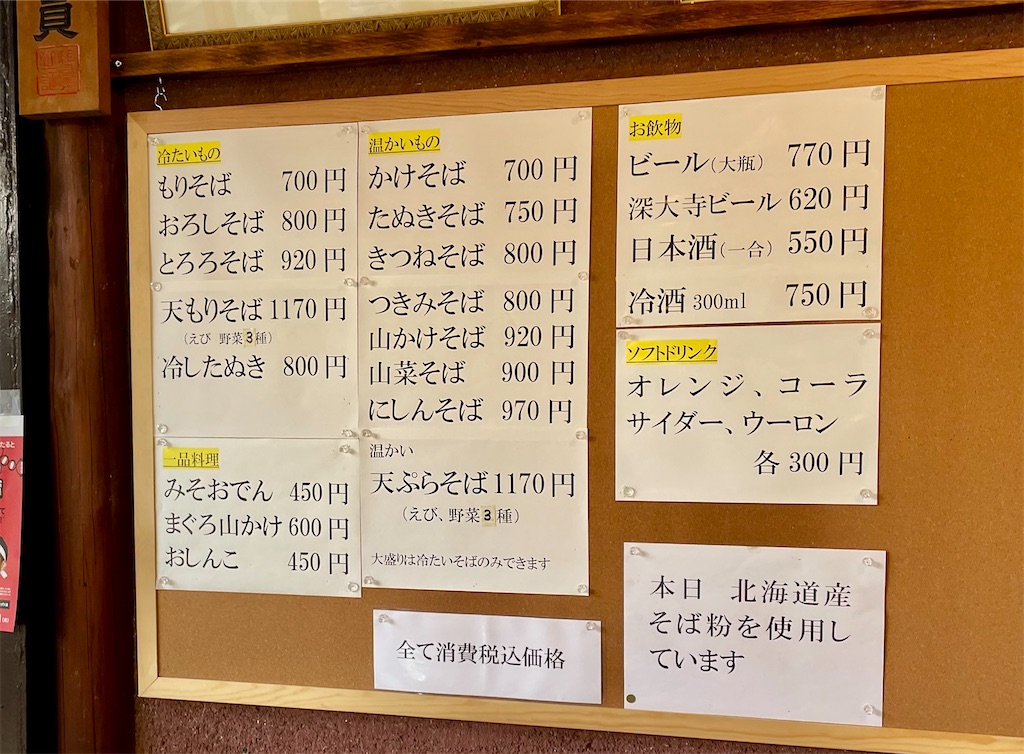 員
冷たいもの
もりそば 700円
おろしそば 800円
とろろそば 920円
天もりそば 1170円
(えび 野菜3種)
冷したぬき 800円
一品料理
みそおでん 450円
まぐろ山かけ 600円
おしんこ 450円
温かいもの
かけそば 700円
たぬきそば 750円
きつねそば 800円
つきみそば 800円
山かけそば 920円
山菜そば 900円
にしんそば 970円
温かい
天ぷらそば 1170円
(えび、野菜3種)
大盛りは冷たいそばのみできます
全て消費税込価格
お飲物
ビール(大瓶) 770円
深大寺ビール 620円
日本酒(一合) 550円
冷酒 300ml 750円
ソフトドリンク
オレンジ、コーラ
サイダー、ウーロン
各 300円
本日 北海道産
そば粉を使用し
ています